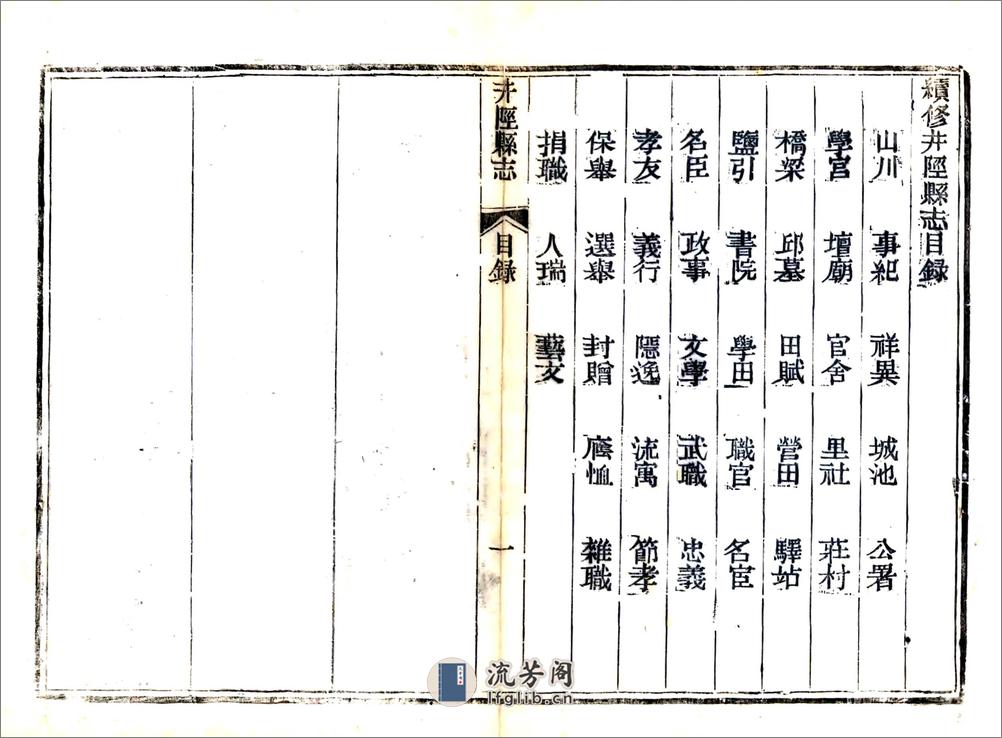 續修井陘縣志目録
山川 事紀 祥異 城池 公署
學宮 壇廟 官舍 里社 莊村
橋梁 邱墓 田賦 營田 驛站
鹽引 書院 學田 職官 名宦
名臣 政事 文學 武職 忠義
孝友 義行 隱逸 流寓 節孝
保舉 選舉 封贈 廕恤 雜職
捐職 人瑞 藝文
井陘縣志 目録 一
流芳阁
lfglib.cn